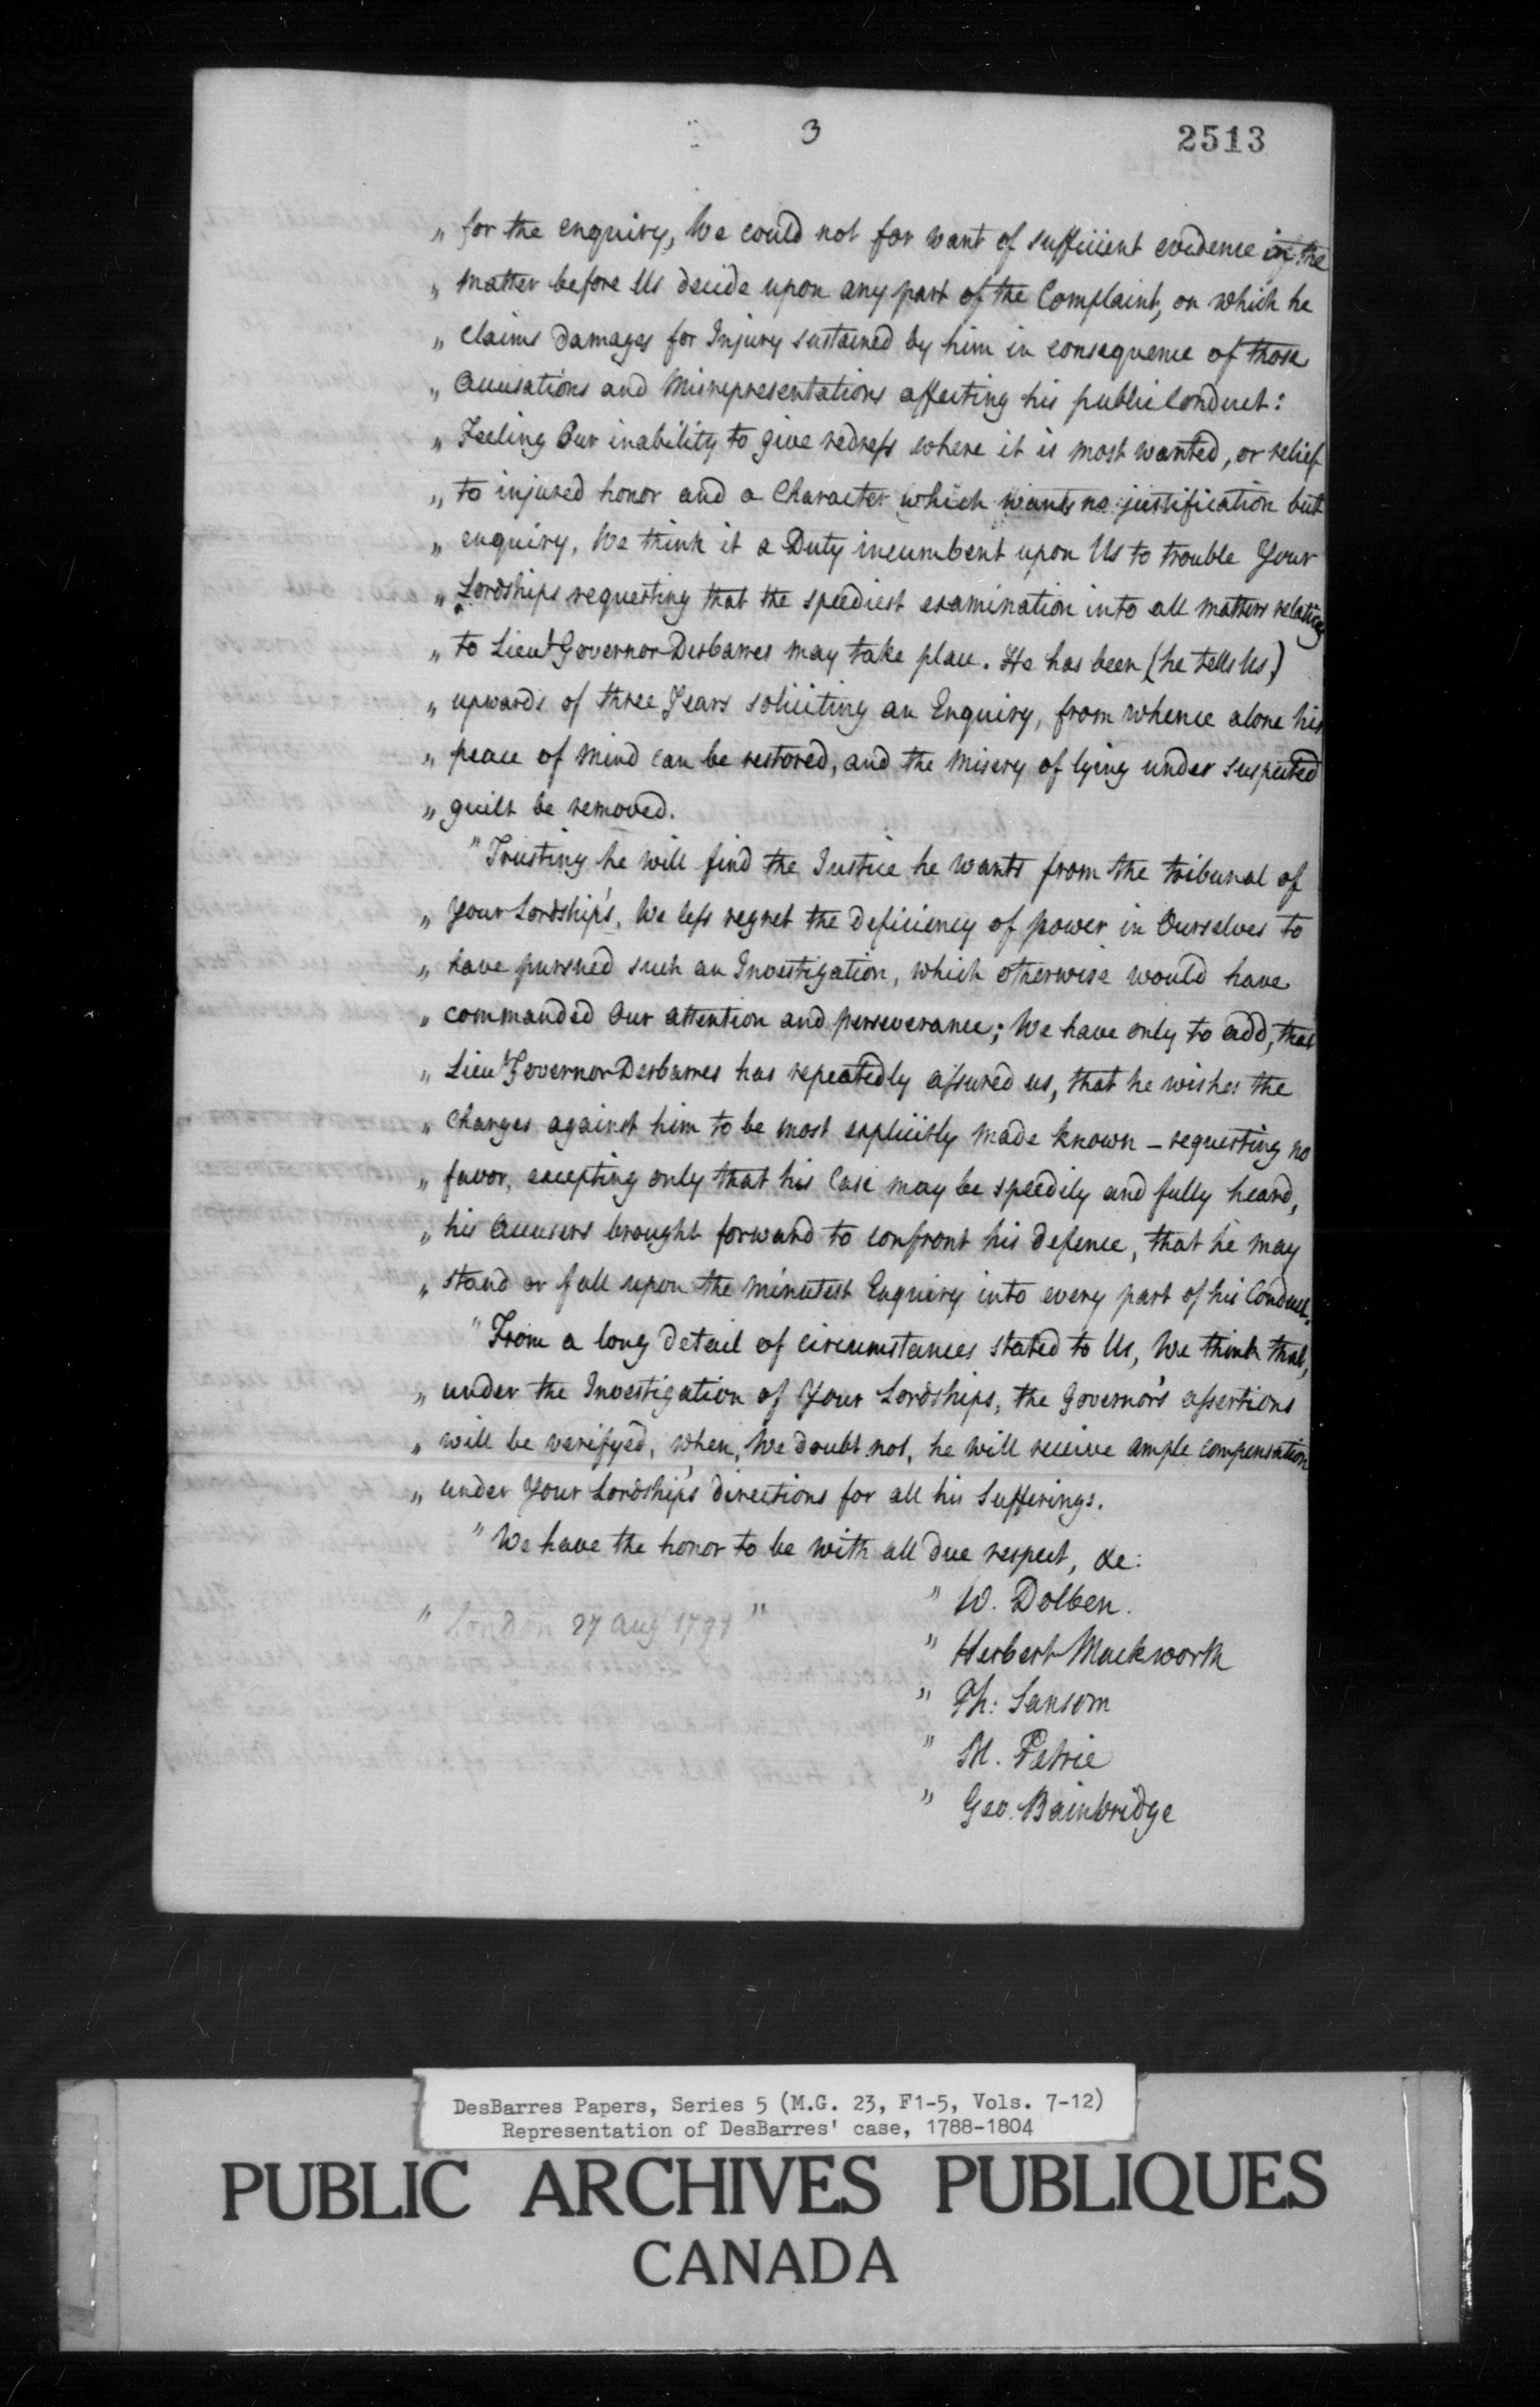 3
2513
" for the enquiry, We could not for want of sufficient evidence in the
" matter before Us decide upon any part of the Complaint, on which he
" claims damages for Injury sustained by him in consequence of those
" Accusations and Misrepresentations affecting his public Conduct:
" Feeling Our inability to give redress where it is most wanted, or relief
" to injured honor and a Character which wants no justification but
" enquiry, We think it a Duty incumbent upon Us to trouble Your
" Lordships requesting that the speediest examination into all matters relating
" to Lieut Governor Desbarres may take place. He has been (he tells Us)
" upwards of three Years soliciting an Enquiry, from whence alone his
" peace of mind can be restored, and the misery of lying under suspected
" guilt be removed.
" Trusting he will find the Justice he wants from the tribunal of
" Your Lordship's, We less regret the deficiency of power in Ourselves to
" have pursued such an Investigation, which otherwise would have
" commanded Our attention and perseverance; We have only to add, that
" Lieut Governor Desbarres has repeatedly assured us, that he wishes the
" Charges against him to be most explicitly made known – requesting no
" favor, excepting only that his Case may be speedily and fully heard,
" his Accusers brought forward to confront his defence, that he may
" stand or fall upon the minutest Enquiry into every part of his Conduct.
" From a long detail of circumstances stated to Us, We think that,
" under the Investigation of Your Lordships, the Governor's assertions
" will be verifyed, when, We doubt not, he will receive ample compensation
" under Your Lordship's directions for all his Sufferings.
" We have the honor to be with all due respect, &c:
" W. Dolben.
" London 27 Aug 1791 "
" Herbert Mackworth
" Th: Sansom
" M. Petrie
" Geo. Bainbridge
DesBarres Papers, Series 5 (M.G. 23, F1-5, Vols. 7-12)
Representation of DesBarres' case, 1788-1804
PUBLIC ARCHIVES PUBLIQUES
CANADA